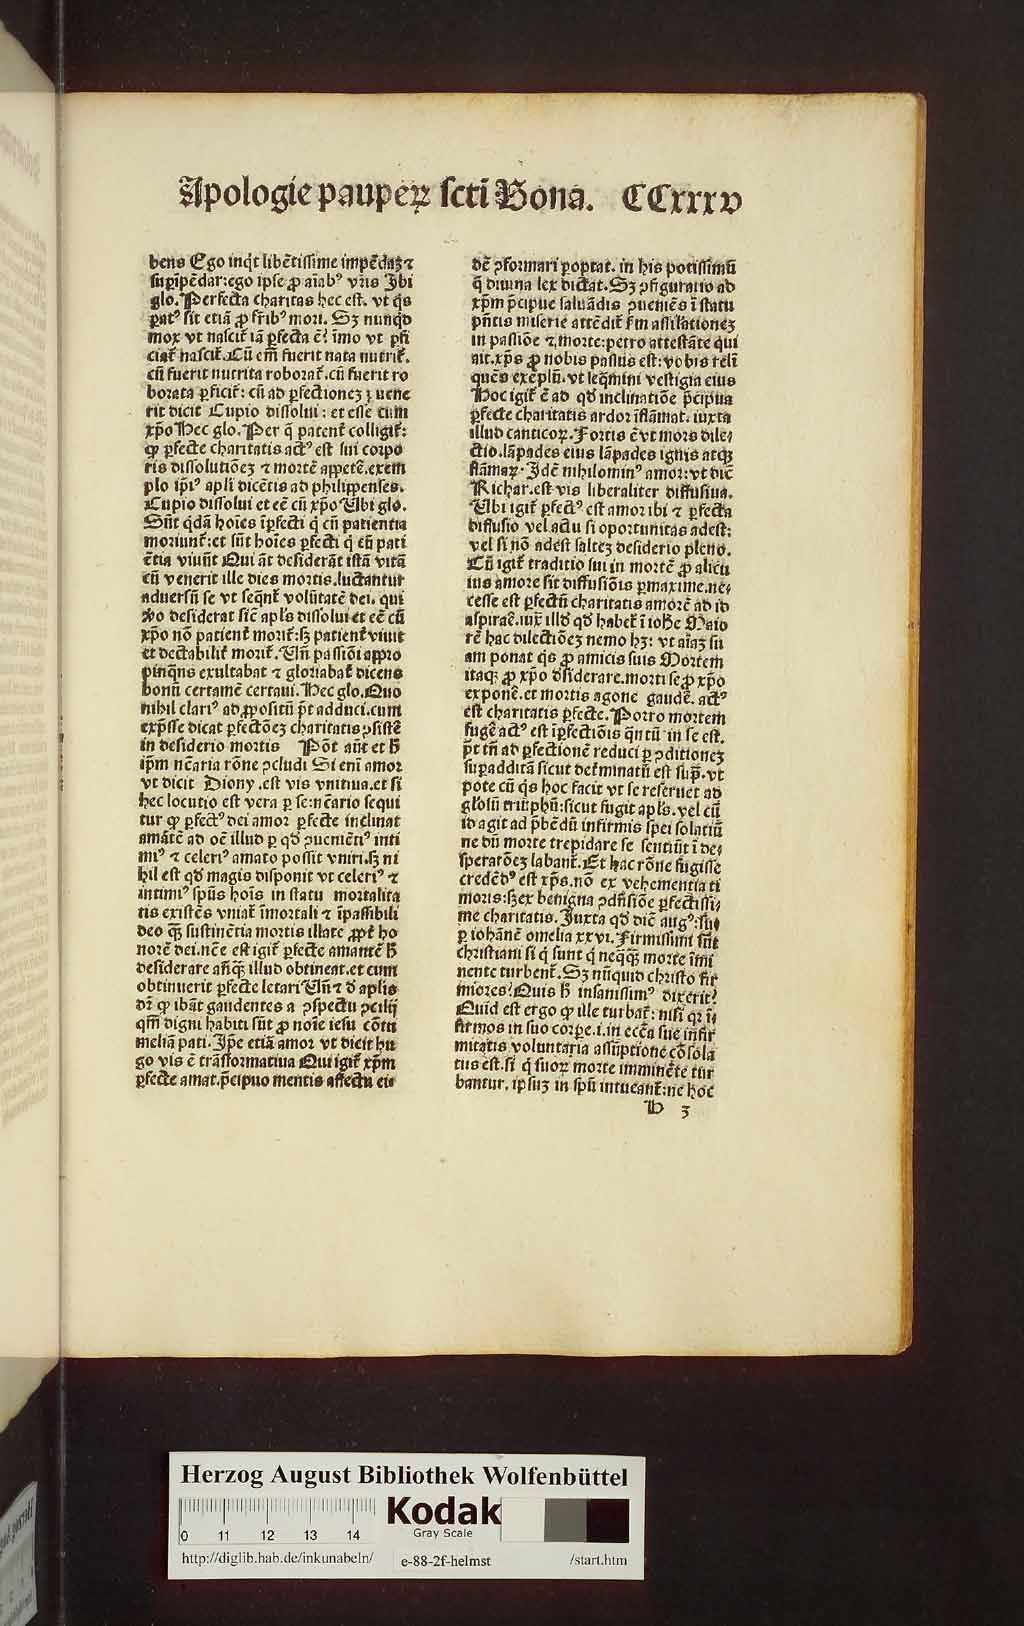 Apologie pauperꝝ scti Bona. CCxxxv
bens Ego inqͥt libētissime impēdaꝫ ⁊
supīpēdar: ego ipse ꝓ aīabꝰ vr̄is Ibi
glo. Perfecta charitas hec est. vt qͥs
ꝑatꝰ sit etiā ꝓ frībꝰ mori. Sꝫ nunqͥd
mox vt nascit̄ iā ꝑfecta ē? īmo vt ꝑfi
ciat̄ nascit̄. Cū em̄ fuerit nata nutrit̄.
cū fuerit nutrita roborat̄. cū fuerit ro
borata ꝑficit̄: cū ad ꝑfectionez ꝑuene
rit dicit Cupio dissolui: et esse cum
xp̄o Hec glo. Per q̄ patent̄ colligit̄:
ꝙ ꝑfecte charitatis actꝰ est sui corpo
ris dissolutiōez ⁊ mortē appetē. exem
plo ip̄iꝰ apl̄i dicētis ad philippenses.
Cupio dissolui et eē cū xp̄o Ubi glo.
Sūt qͥdā hoīes īꝑfecti q̄ cū patientia
moriunt̄: et sūt hoīes ꝑfecti q̄ cū pati
ētia viuūt Qui āt desiderāt istā vitā
cū venerit ille dies mortis. luctantur
aduersū se vt seqͣnt̄ volūtatē dei. qui
ꝟo desiderat sic̄ apl̄s dissolui et eē cū
xp̄o nō patient̄ morit̄: sꝫ patient̄ viuit
et delectabilit̄ morit̄. Un̄ passiōi appro
pinqͣns exultabat ⁊ gloriabat̄ dicens
bonū certamē certaui. Hec glo. Quo
nihil clariꝰ ad ꝓpositū p̄t adduci. cum
exp̄sse dicat ꝑfectōez charitatis ꝯsistē
in desiderio mortis Pōt aūt et ħ
ip̄m nc̄aria rōne ꝯcludi Si enī amor
vt dicit Diony. est vis vnitiua. et si
hec locutio est vera ꝑ se: nc̄ario sequi
tur ꝙ ꝑfectꝰ dei amor ꝑfecte inclinat
amātē ad oē illud ꝑ qd̄ ꝯueniētiꝰ inti
miꝰ ⁊ celeriꝰ amato possit vniri. sꝫ ni
hil est qd̄ magis disponit vt celeriꝰ ⁊
intimiꝰ spūs hoīs in statu mortalita
tis existēs vniat̄ īmortali ⁊ īpassibili
deo qͣꝫ sustinētia mortis illate ꝓpt̄ ho
norē dei. nc̄e est igit̄ ꝑfecte amantē ħ
desiderare āteqͣꝫ illud obtineat. et cum
obtinuerit ꝑfecte letari Un̄ ⁊ d̄ aplis
dr̄ ꝙ ibāt gaudentes a ꝯspectu ꝯcilij
qm̄ digni habiti sūt ꝓ noīe iesu cōtu
meliā pati. Ip̄e etiā amor vt dicit hu
go vis ē trāsformatiua Qui igit̄ xp̄m
ꝑfecte amat. p̄cipuo mentis affectu ei⁹
dē ꝯformari ꝑoptat. in his potissimū
q̄ diuina lex dictat. Sꝫ ꝯfiguratio ad
xp̄m p̄cipue saluādis ꝯueniēs ī statu
pn̄tis miserie attēdit̄ fm̄ assil̄ationez
in passiōe ⁊ morte: petro attestāte qui
ait. xp̄s ꝓ nobis passus est: vobis relī
quēs exēplū. vt seq̄mini vestigia eius
Hoc igit̄ ē ad qd̄ inclinatiōe p̄cipua
ꝑfecte charitatis ardor īflāmat. iuxta
illud canticoꝝ. Fortis ē vt mors dile-
ctio. lāpades eius lāpades ignis atqꝫ
flāmaꝝ. Idē nihilominꝰ amor: vt dic̄
Richar. est vis liberaliter diffusiua.
Ubi igit̄ ꝑfectꝰ est amor ibi ⁊ ꝑfecta
diffusio vel actu si oportunitas adest:
vel si nō adest saltez desiderio pleno.
Cū igit̄ traditio sui in mortē ꝓ alicu
ius amore sit diffusiōis ꝑmaxime. ne-
cesse est ꝑfectū charitatis amorē ad id
aspirare. iux̄ illd̄ qd̄ habet̄ ī iohe Maio
rē hac dilectiōez nemo hꝫ: vt aīaꝫ su
am ponat qͥs ꝓ amicis suis Mortem
itaqꝫ ꝓ xp̄o d̄siderare. mori se ꝓ xp̄o
exponē. et mortis agone gaudē. actꝰ
est charitatis ꝑfecte. Porro mortem
fugē actꝰ est īꝑfectiōis qͣntū in se est.
p̄t tn̄ ad ꝑfectionē reduci ꝑ ꝯditionez
suꝑadditā sicut det̄minatū est supͣ. vt
pote cū qͥs hoc facit vt se reseruet ad
gl̄osū triūphū: sicut fugit apl̄s. vel cū
id agit ad p̄bēdū infirmis spei solatiū
ne dū morte trepidare se sentiūt ī de-
speratōez labant̄. Et hac rōne fugisse
credēdꝰ est xp̄s. nō ex vehementia ti
moris: sꝫ ex benigna ꝯdn̄siōe ꝑfectissi-
me charitatis. Iuxta qd̄ dic̄ augꝰ: su-
ꝑ iohānē omelia xxvi. Firmissimi sūt
christiani si q̄ sunt q̄ neqͣqͣꝫ morte īmi
nente turbent̄. Sꝫ nūquid christo fir
miores? Quis ħ insanissimꝰ dixerit?
Quid est ergo ꝙ ille turbat̄: nisi qꝛ ī-
firmos in suo corꝑe. i. in ecc̄a sue infir
mitatis voluntaria assūptione cōsola
tus est. si q̄ suoꝝ morte imminēte tur
bantur. ipsuꝫ in spū intueant̄: ne hoc
H 3
Herzog August Bibliothek Wolfenbüttel
0 11 12 13 14
Kodak
Gray Scale
http://diglib.hab.de/inkunabeln/ e-88-2f-helmst /start.htm